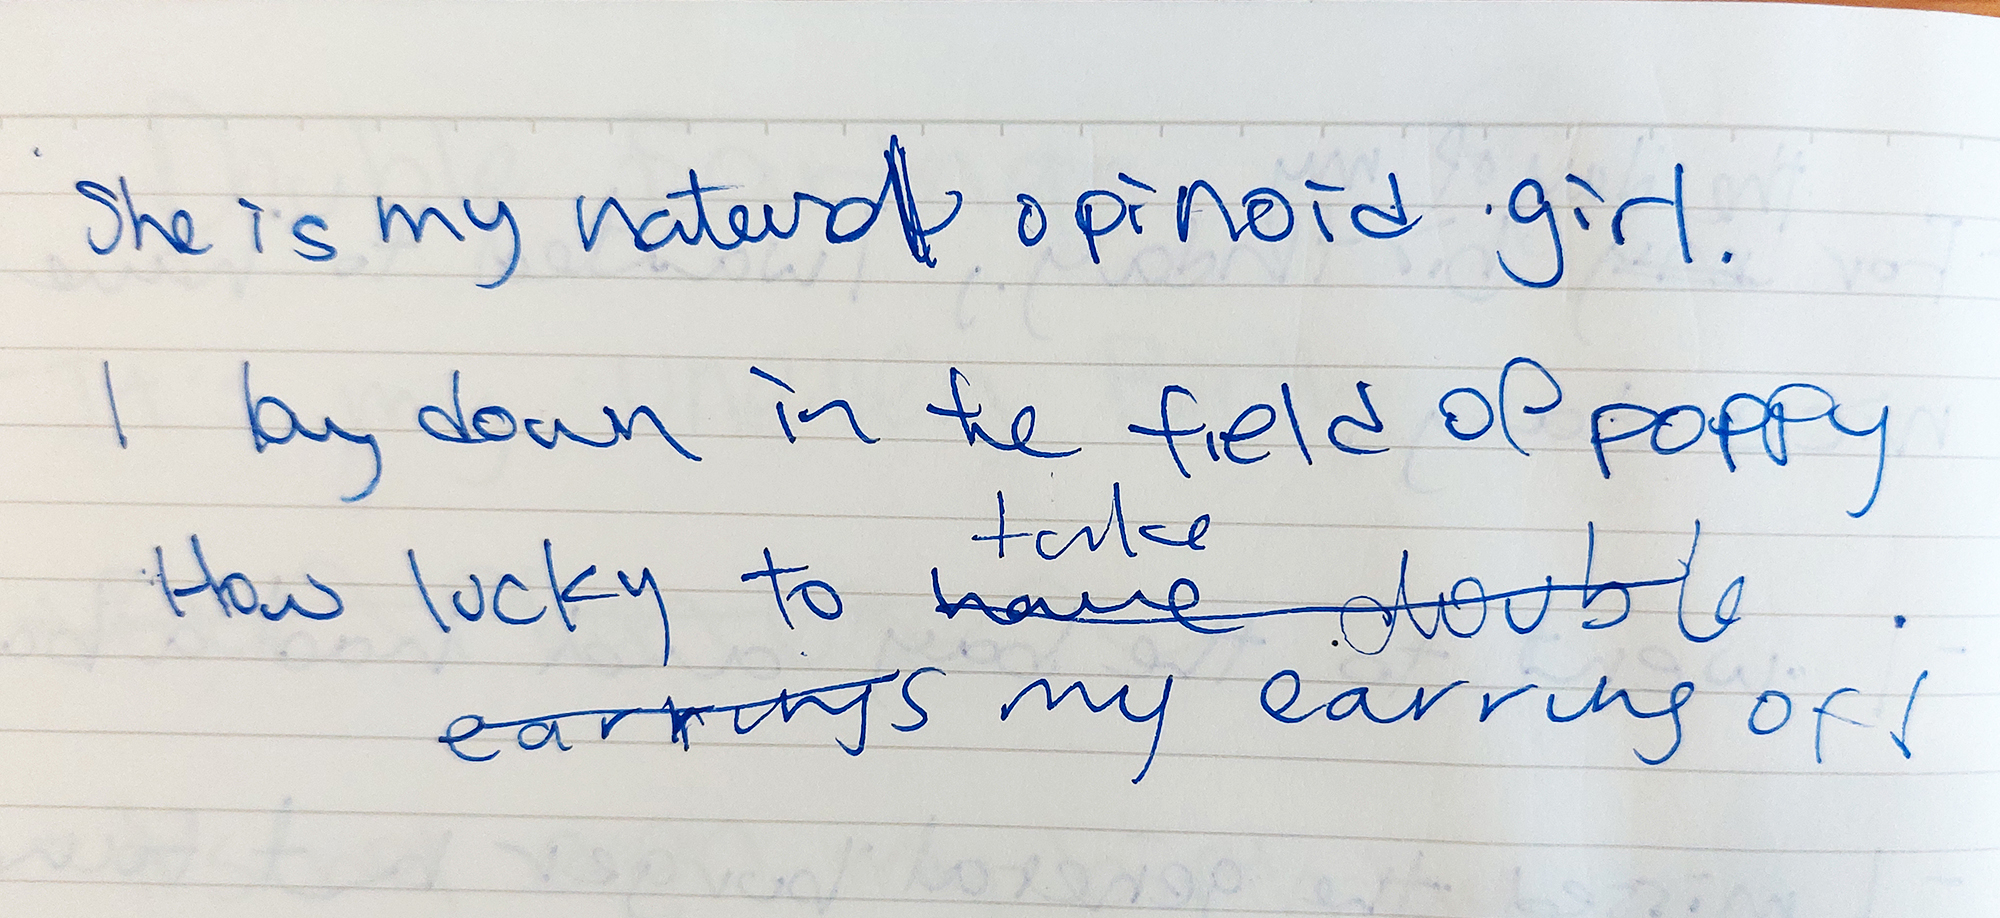 She is my natural opinoid girl.
I lay down in the field of poppy
take
How lucky to have double.
earrings my earring off